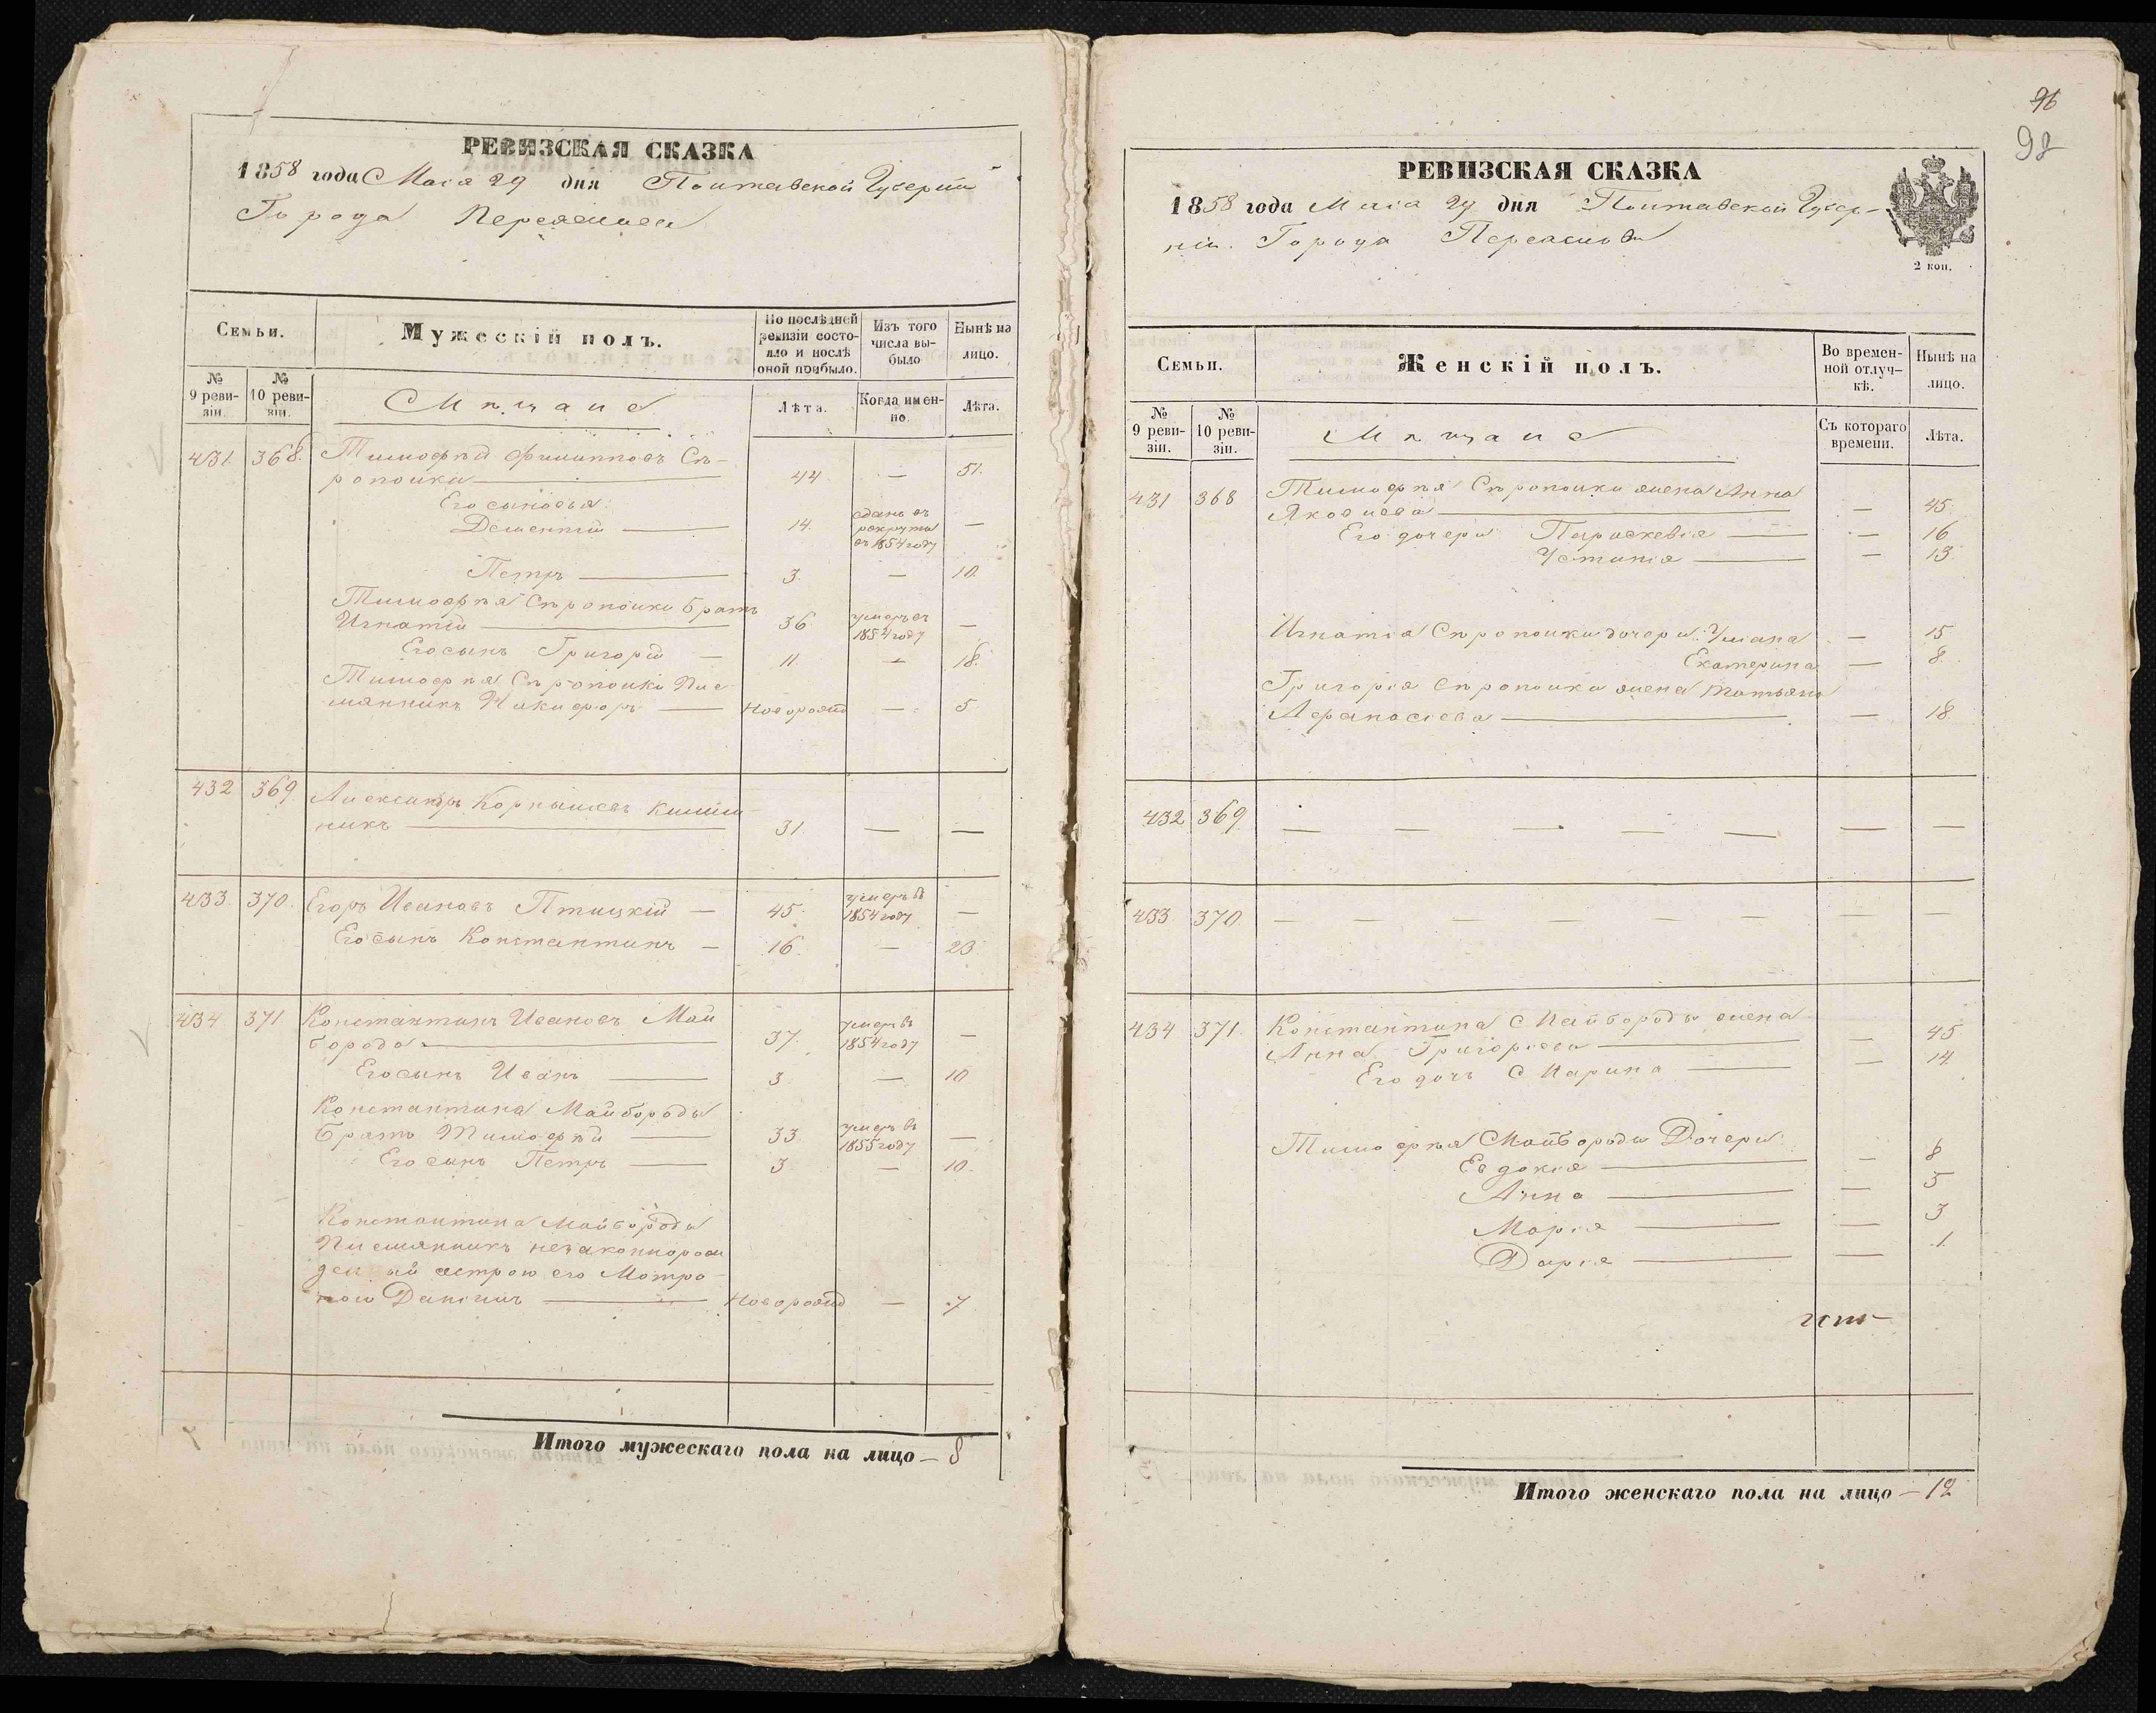 РЕВИЗСКАЯ СКАЗКА
1858 года Маія 29 дня Полтавской Губерніи
Города Переяслава
Семьи.
Мужескій полъ.
По послѣдней ревизіи состояло и послѣ оной прибыло.
Изъ того числа выбыло
Нынѣ на лицо.
№ 9 ревизіи.
№ 10 ревизіи.
Мѣщане
Лѣта.
Когда именно.
Лѣта.
431. 368. Тимофѣй Филипповъ Сѣ-
ропойка 44 — 51.
Его сыновья:
Дементій 14. сданъ въ рекруты въ 1854 году —
Петръ 3. — 10.
Тимофѣя Сѣропойки братъ
Игнатій 36. умеръ въ 1854 году —
Его сынъ Григорій — 11. — 18.
Тимофѣя Сѣропойки Пле-
мянникъ Никифоръ Новорожд — 5.
432 369.
Александръ
никъ 31. — —
433. 370. Егоръ Ивановъ Птицкій — 45. умеръ въ 1854 году —
Его сынъ Константинъ — 16. — 23.
434. 371. Константинъ Ивановъ Май
борода 37. умеръ въ 1854 году —
Его сынъ Иванъ 3. — 10
Константина Майбороды
братъ Тимофѣй 33. умеръ въ 1855 году —
Его сынъ Петръ 3 — 10.
Константина Майбороды
Племянникъ незаконнорож
денный сестрою его Мотро-
ною Даніилъ Новорожд — 7
Итого мужескаго пола на лицо — 8
96
98
РЕВИЗСКАЯ СКАЗКА
1858 года Маія 29 дня Полтавской Губер-
ніи. Города Переяслава
2 коп.
Семьи.
Женскій полъ.
Во временной отлучкѣ.
Нынѣ на лицо.
№ 9 ревизіи.
№ 10 ревизіи.
Мѣщане
Съ котораго времени.
Лѣта.
431 368 Тимофѣя Сѣропойки жена Анна
Яковлева — 45.
Его дочери: Параскевія — 16
Устинія — 13.
Игнатія Сѣропойки дочери: Уліана — 15
Екатерина — 8.
Григорія Сѣропойки жена Татьяна
Афанасіева — 18.
432 369. — — — — — — —
433. 370 — — — — — — — —
434 371. Константина Майбороды жена
Анна Григорьева — 45
Его дочь Марина — 14
Тимофѣя Майбороды Дочери:
Евдокія — 8
Анна — 5
Марія — 3
Дарія — 1.
Итого женскаго пола на лицо — 12